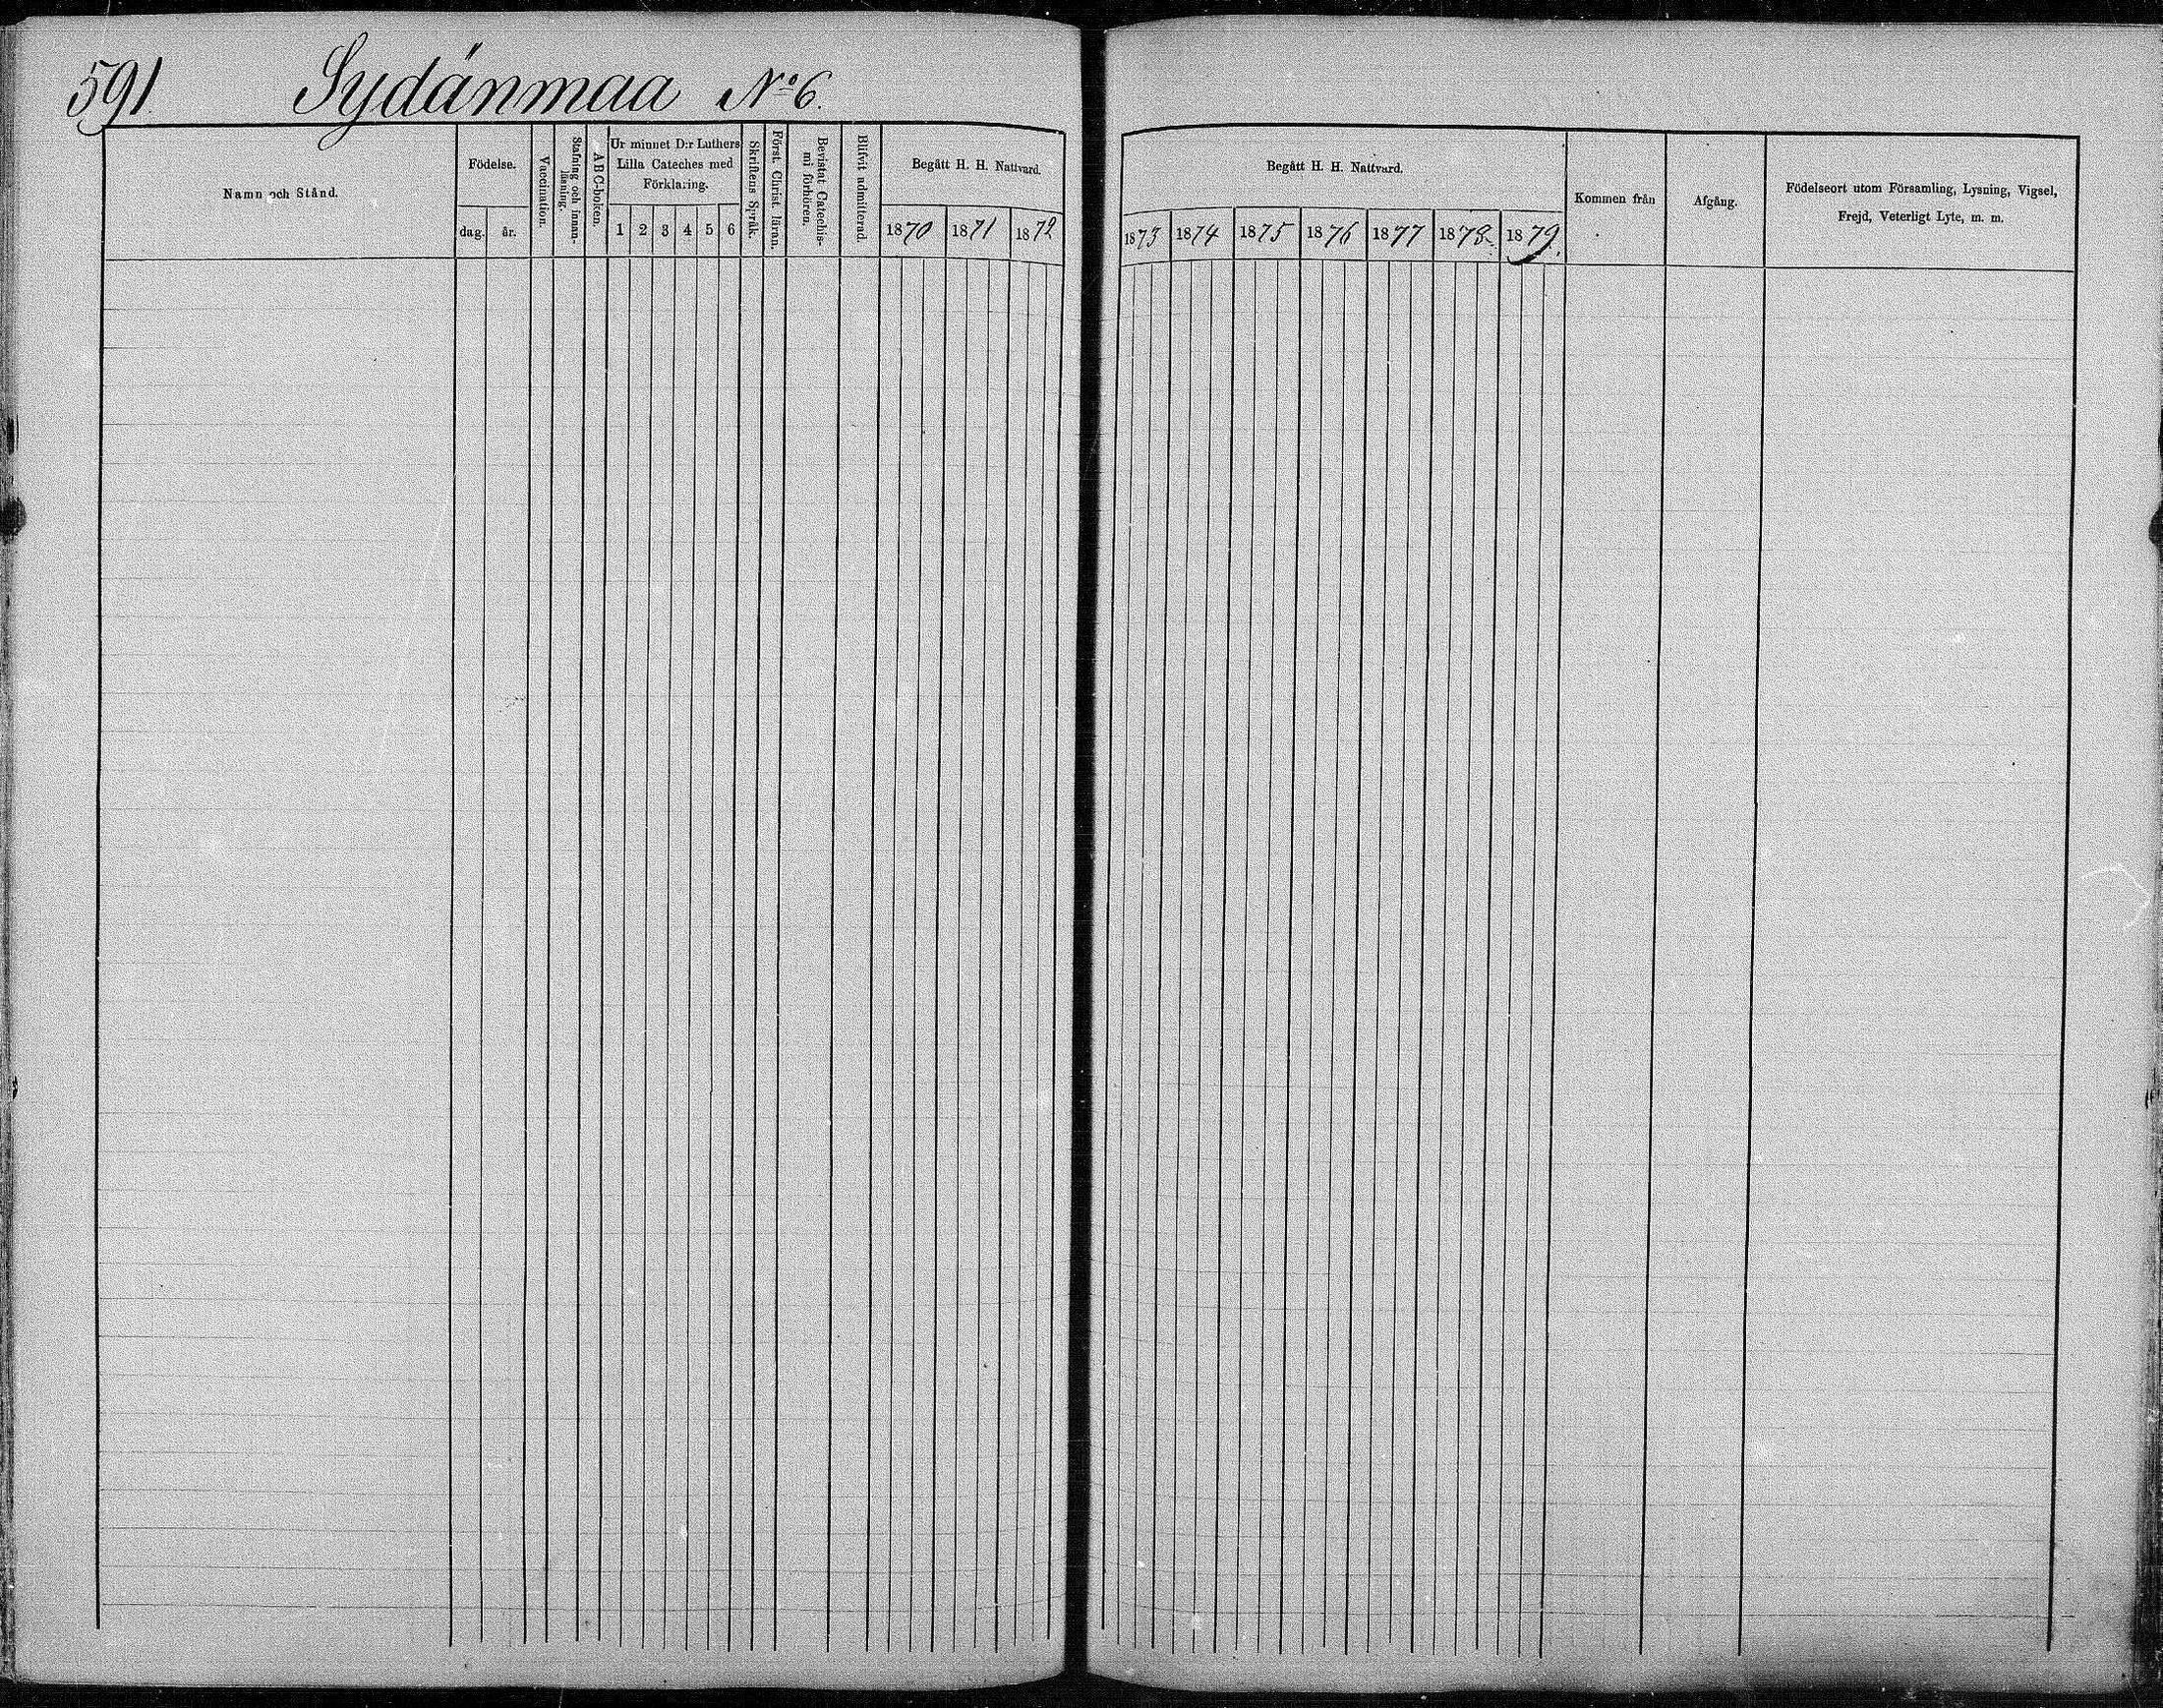 591. Sydänmaa No 6.
Namn och Stånd.
Födelse.
dag. år.
Vaccination.
Stafning och innan-
läsning.
ABC-boken.
Ur minnet D:r Luthers
Lilla Cateches med
Förklaring.
1 2 3 4 5 6
Skriftens Språk.
Först. Christ. läran.
Bevistat Catechis-
mi förhören.
Blifvit admitterad.
Begått H. H. Nattvard.
1870 1871 1872
Begått H. H. Nattvard.
1873 1874 1875 1876 1877 1878 1879.
Kommen från
Afgång.
Födelseort utom Församling, Lysning, Vigsel,
Frejd, Veterligt Lyte, m. m.